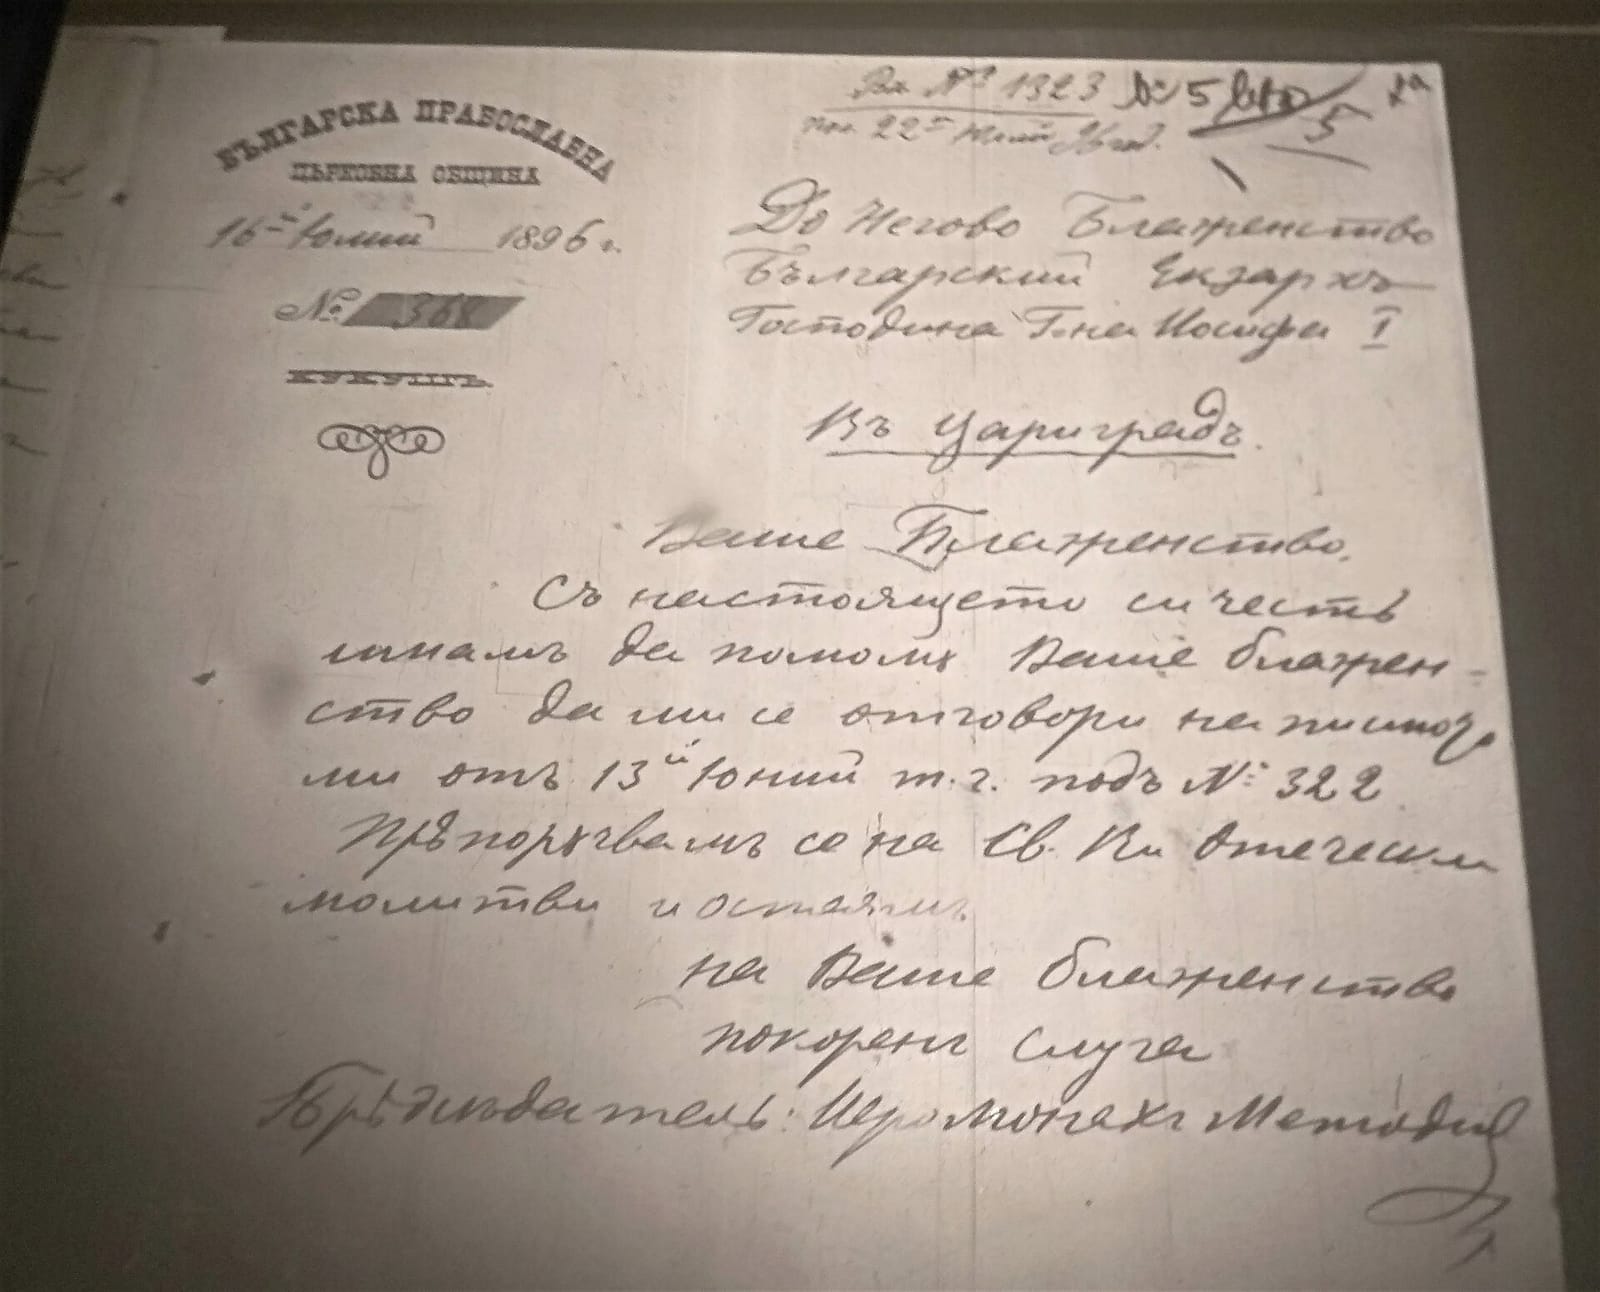 БЪЛГАРСКА ПРАВОСЛАВНА
ЦЪРКОВНА ОБЩИНА
16й Юлий 1896 г.
№ 368
КУКУШЪ.
Вх №º 1323
пол. 22й Юлий 96 год.
5
До Негово Блаженство
Българский Екзархъ
Господина Г.на Иосифа I
Въ Цариградъ.
Ваше Блаженство,
Съ настоящето си честь
имамъ да помолѫ Ваше блажен-
ство да ми се отговори на писмото
ми отъ 13й Юний т.г. подъ № 322
Прѣпорѫчвамъ се на Св. Ви Отечески
молитви и оставамъ
на Ваше блаженство
покоренъ слуга
Прѣдсѣдатель: Иеромонахъ Методий